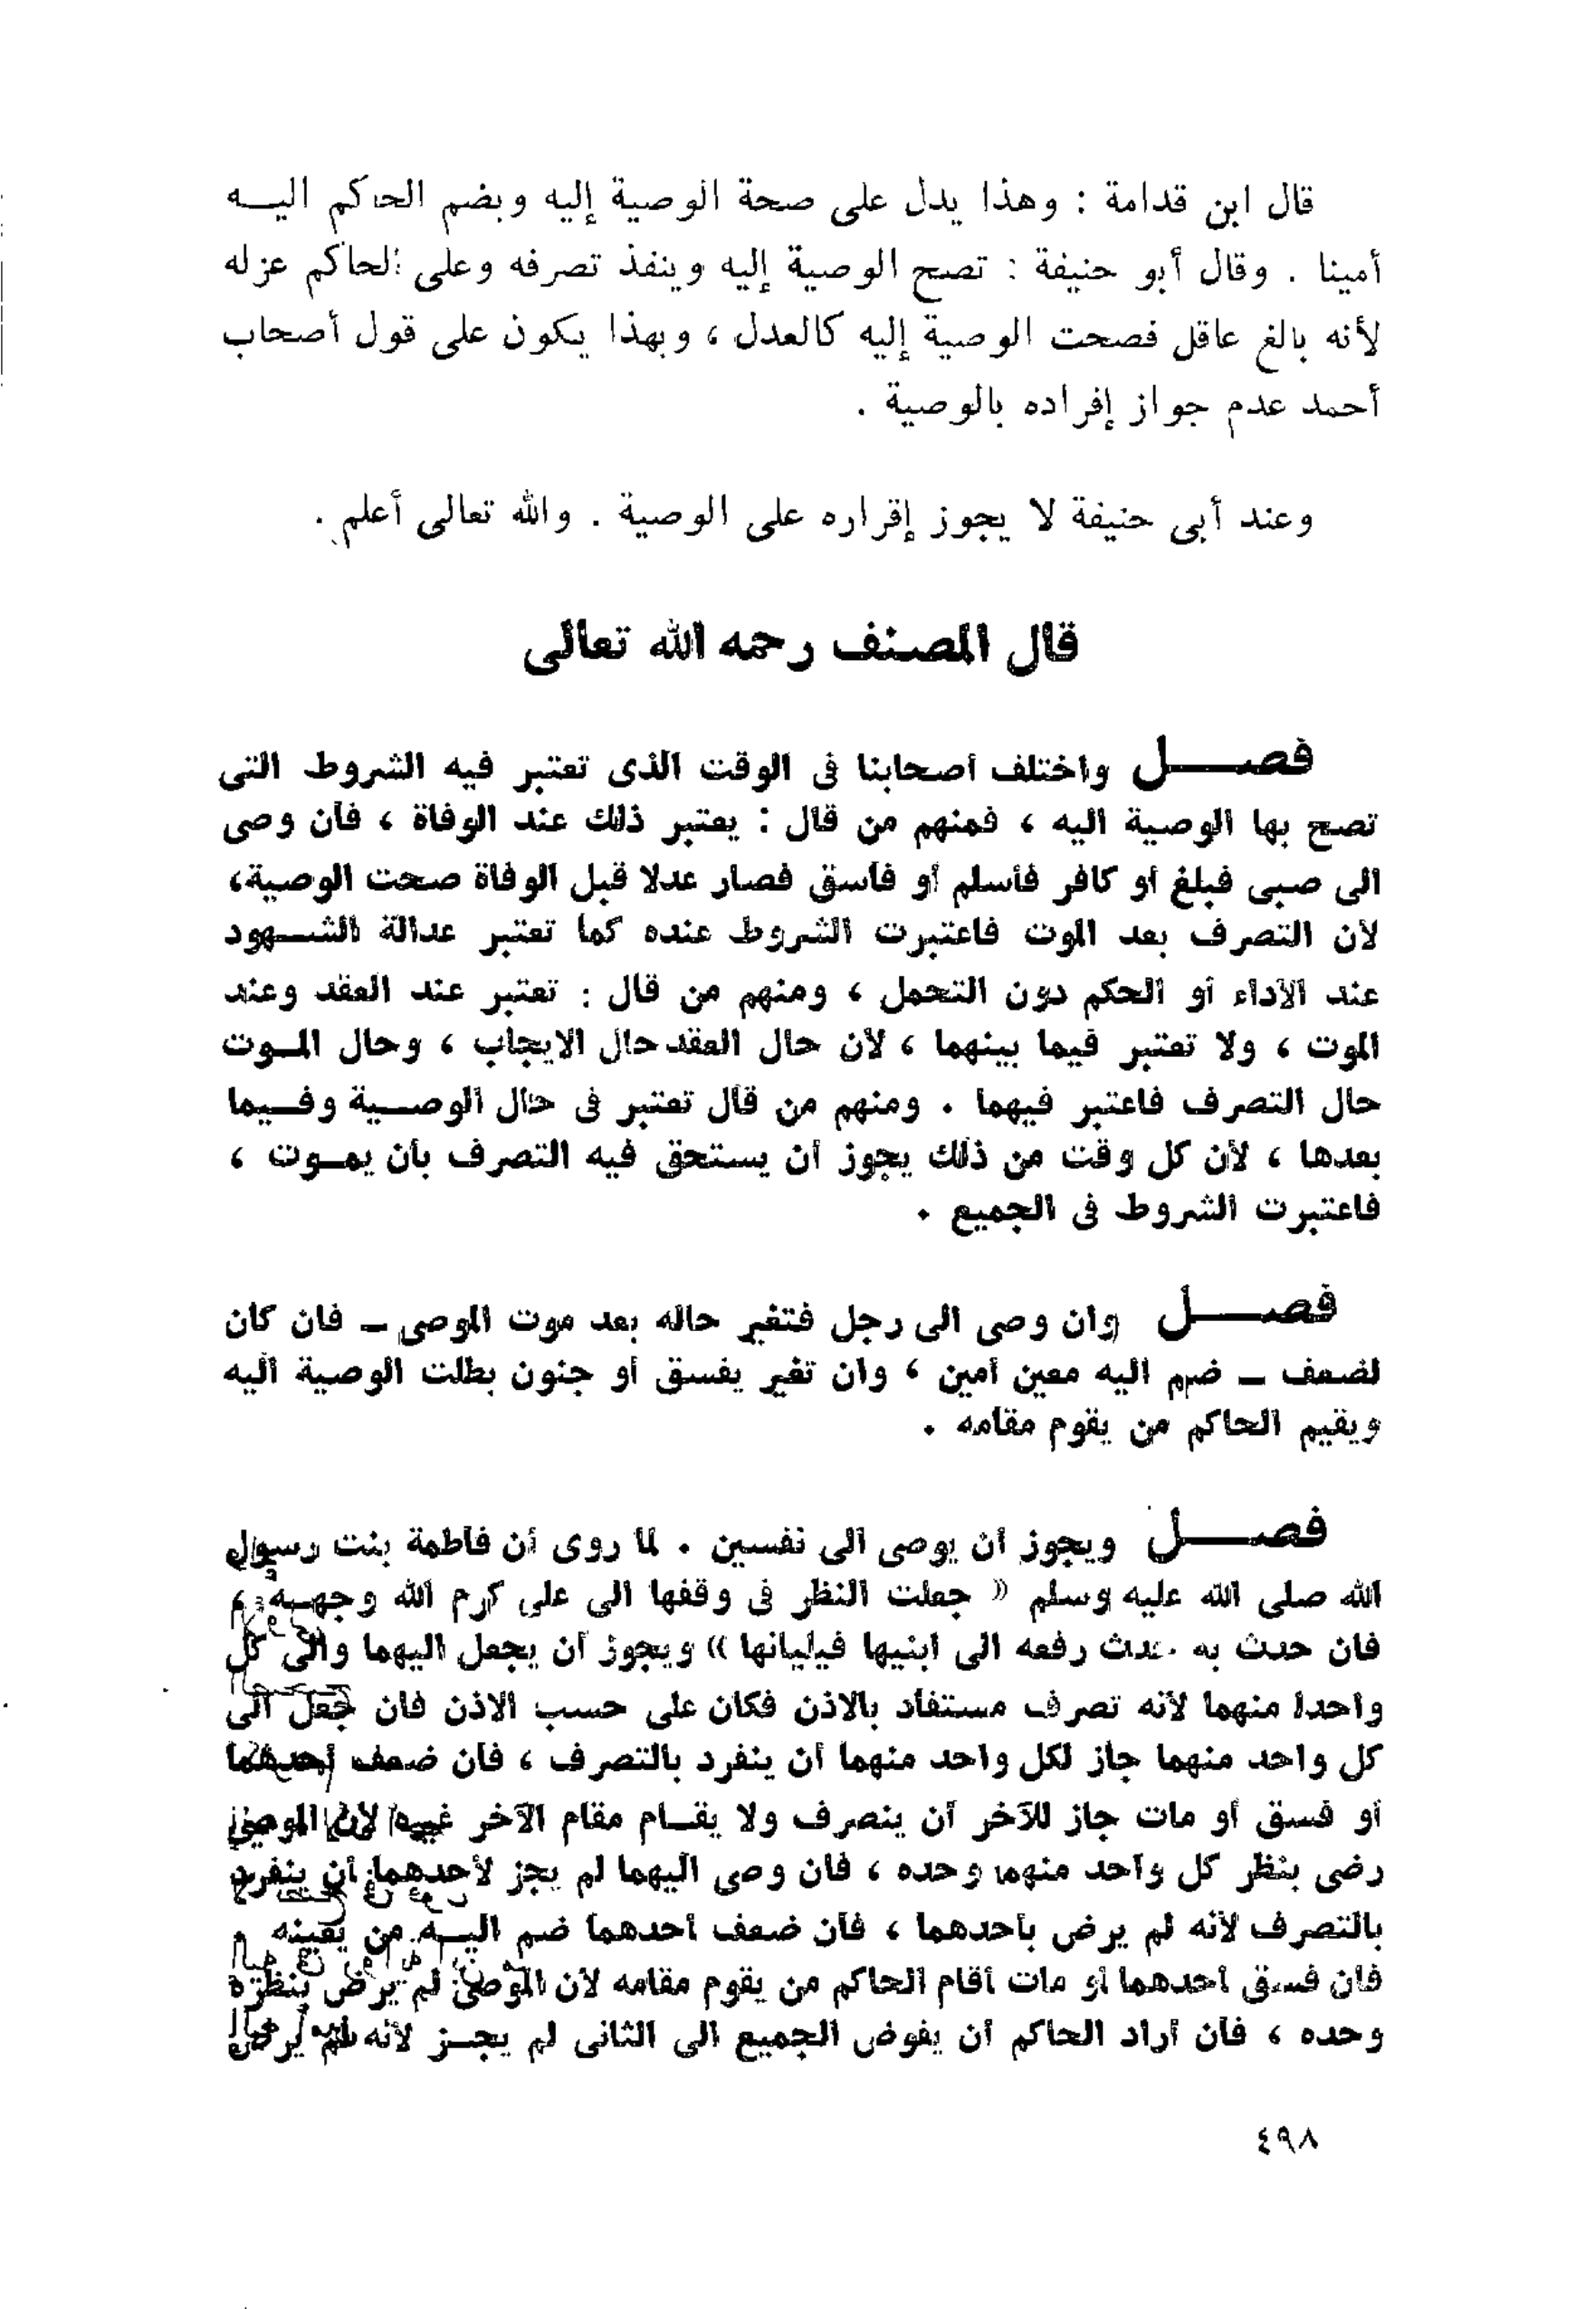 قال ابن قدامة : وهذا يدل على صحة الوصية إليه وبضم الحاكم اليـــه
أمينا . وقال أبو حنيفة : تصح الوصية إليه وينفذ تصرفه وعلى الحاكم عزله
لأنه بالغ عاقل فصحت الوصية إليه كالعدل ، وبهذا يكون على قول أصحاب
أحمد عدم جواز إفراده بالوصية .
وعند أبى حنيفة لا يجوز إقراره على الوصية . والله تعالى أعلم .
قال المصنف رحمه الله تعالى
فصـــــل واختلف أصحابنا فى الوقت الذى تعتبر فيه الشروط التى
تصح بها الوصية اليه ، فمنهم من قال : يعتبر ذلك عند الوفاة ، فان وصى
الى صبى فبلغ أو كافر فأسلم أو فاسق فصار عدلا قبل الوفاة صحت الوصية،
لأن التصرف بعد الموت فاعتبرت الشروط عنده كما تعتبر عدالة الشـــهود
عند الأداء أو الحكم دون التحمل ، ومنهم من قال : تعتبر عند العقد وعند
الموت ، ولا تعتبر فيما بينهما ، لأن حال العقد حال الايجاب ، وحال المـــوت
حال التصرف فاعتبر فيهما . ومنهم من قال تعتبر فى حال الوصـــية وفـــيما
بعدها ، لأن كل وقت من ذلك يجوز أن يستحق فيه التصرف بأن يمـــوت ،
فاعتبرت الشروط فى الجميع .
فصـــــل وان وصى الى رجل فتغير حاله بعد موت الموصى ــ فان كان
لضعف ــ ضم اليه معين أمين ، وان تغير بفسق أو جنون بطلت الوصية اليه
ويقيم الحاكم من يقوم مقامه .
فصـــــل ويجوز أن يوصى الى نفسين . لما روى أن فاطمة بنت رسول
الله صلى الله عليه وسلم « جعلت النظر فى وقفها الى على كرم الله وجهـــه ،
فان حدث به حدث رفعه الى ابنيها فيليانها » ويجوز أن يجعل اليهما والى كل
واحدا منهما لأنه تصرف مستفاد بالاذن فكان على حسب الاذن فان جعل الى
كل واحد منهما جاز لكل واحد منهما أن ينفرد بالتصرف ، فان ضعف أحدهما
أو فسق أو مات جاز للآخر أن يتصرف ولا يقـــام مقام الآخر غيره لأن الموصى
رضى بنظر كل واحد منهما وحده ، فان وصى اليهما لم يجز لأحدهما أن ينفرد
بالتصرف لأنه لم يرض بأحدهما ، فان ضعف أحدهما ضم اليـــه من يعينه ،
فان فسق أحدهما أو مات أقام الحاكم من يقوم مقامه لأن الموصى لم يرض بنظره
وحده ، فان أراد الحاكم أن يفوض الجميع الى الثانى لم يجـــز لأنه لم يرض
٤٩٨